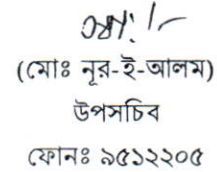 (মোঃ নূর-ই-আলম)
উপসচিব
ফোনঃ ৯৫১২২০৫